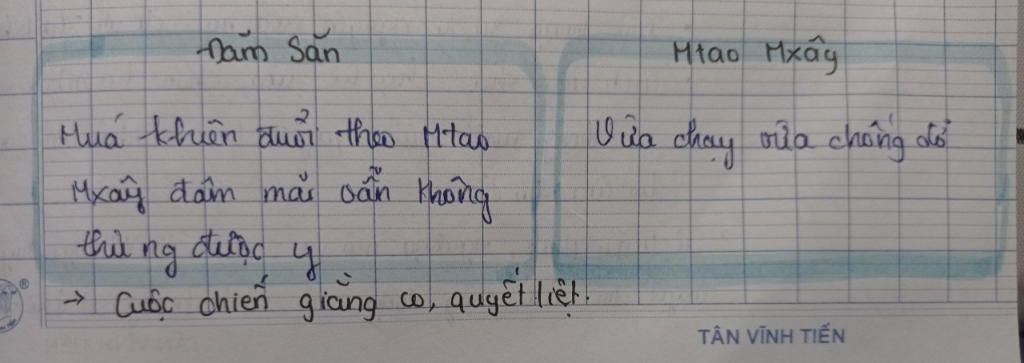 Đăm Săn
Mtao Mxây
Múa khiên đuổi theo Mtao
Mxây đâm mãi vẫn không
thủng được y
Vừa chạy vừa chống đỡ
→ Cuộc chiến giằng co, quyết liệt.
TÂN VĨNH TIẾN